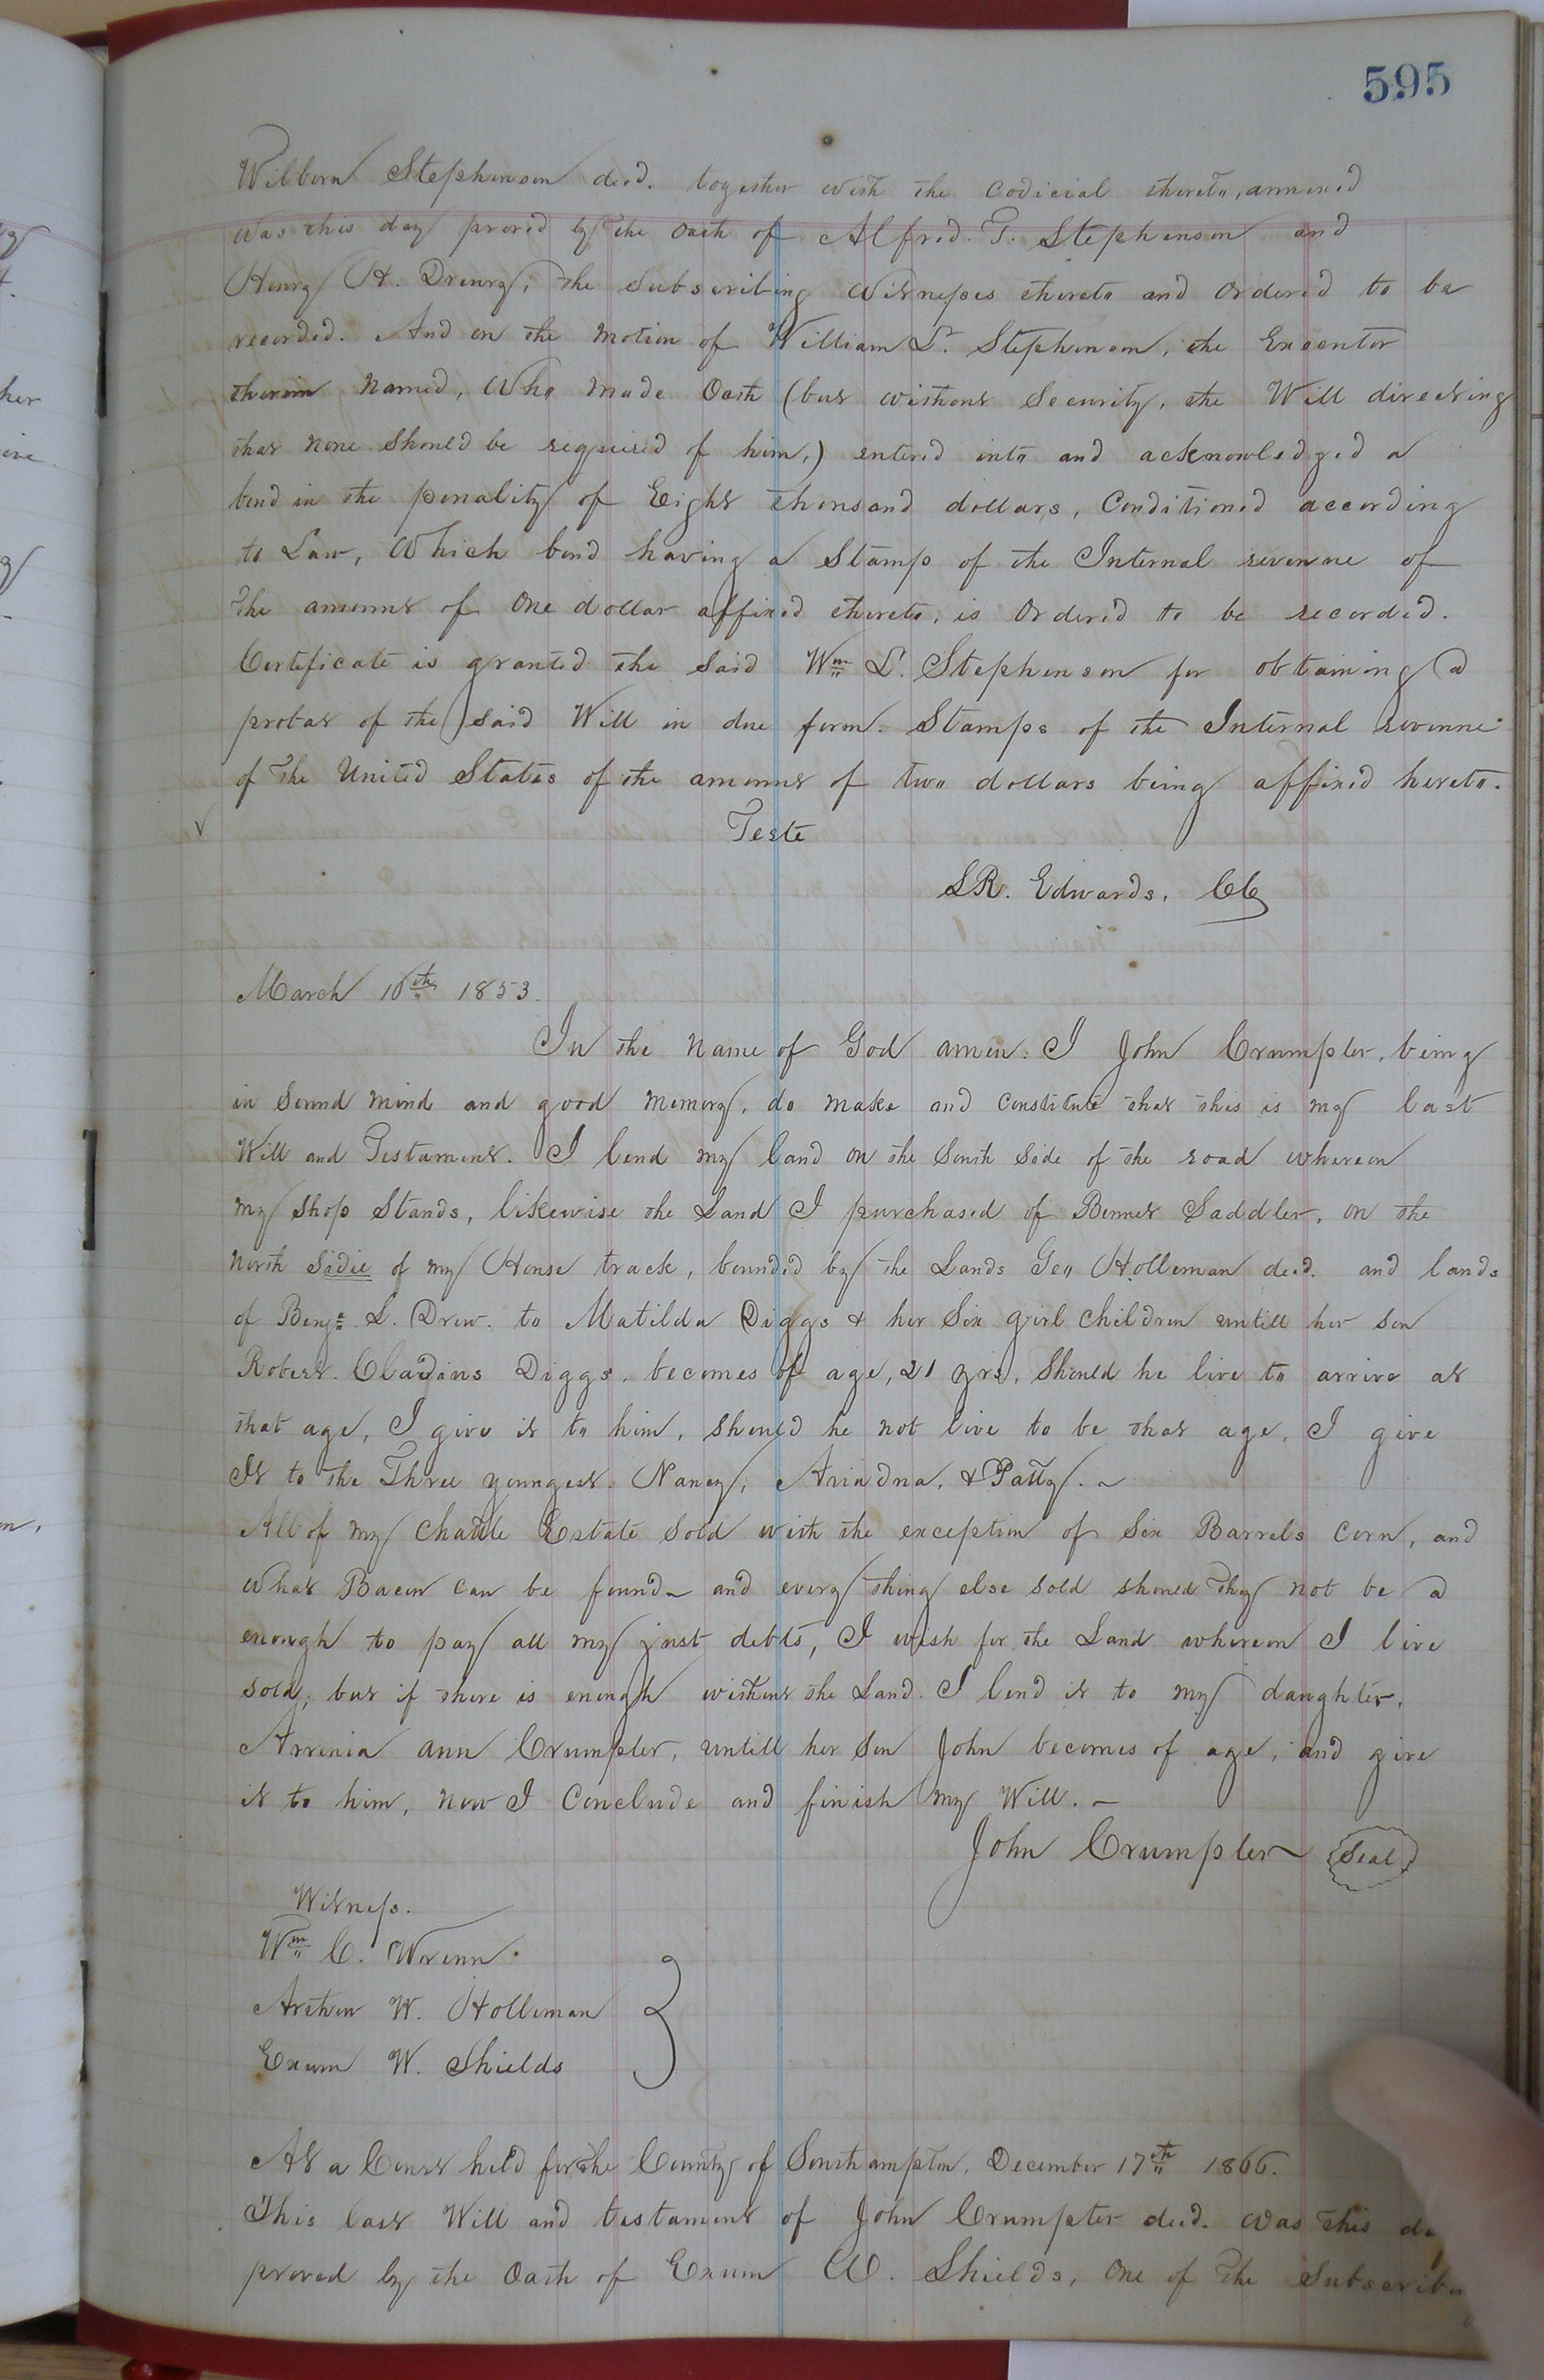 595
Wilborn Stephenson decd. together with the Codicial thereto, annexed
was this day proved by the oath of Alfred. T. Stephenson and
Henry H. Drewry, the Subscribing Witnesses thereto and Ordered to be
recorded. And on the motion of William L. Stephenson, the Executor
therein Named, Who made Oath (but without Security, the Will directing
that none Should be required of him,) entered into and acknowledged a
bond in the penality of Eight thousand dollars, Conditioned according
to Law, Which bond having a Stamp of the Internal revenue of
the amount of One dollar affixed thereto, is Ordered to be recorded.
Certificate is granted the Said Wm L. Stephenson for obtaining a
probat of the Said Will in due form. Stamps of the Internal revenue
of the United States of the amount of two dollars being affixed hereto.
Teste
L R. Edwards, CC
March 10th 1853.
In the Name of God amen. I John Crumpler, being
in Sound mind and good memory, do make and Constitute that this is my last
Will and Testament. I lend my land on the South Side of the road whereon
my Shop Stands, likewise the Land I purchased of Bennet Saddler, on the
North Sadie of my House track, bounded by the Lands Geo Holleman decd. and lands
of Benja L. Drew. to Matilda Diggs & her Six girl Children untill her son
Robert. Claudius Diggs. becomes of age, 21 yrs, Should he live to arrive at
that age, I give it to him, should he not live to be that age, I give
It to the Three youngest. Nancy, Ariadna, & Patty.
All of my Chattle Estate Sold with the exception of Six Barrels Corn, and
What Bacon can be found and every thing else sold should they not be a
enough to pay all my just debts, I wish for the Land whereon I live
sold, but if there is enough without the Land. I lend it to my daughter,
Arrenia ann Crumpler, untill her Son John becomes of age, and give
it to him, now I Conclude and finish my Will.
John Crumpler Seal
Witness.
Wm C. Wrenn.
Arthur W. Holleman
Exum W. Shields
At a Court held for the County of Southampton, December 17th 1866.
This last Will and testament of John Crumpler decd. was this
proved by the Oath of Exum W. Shields, One of the